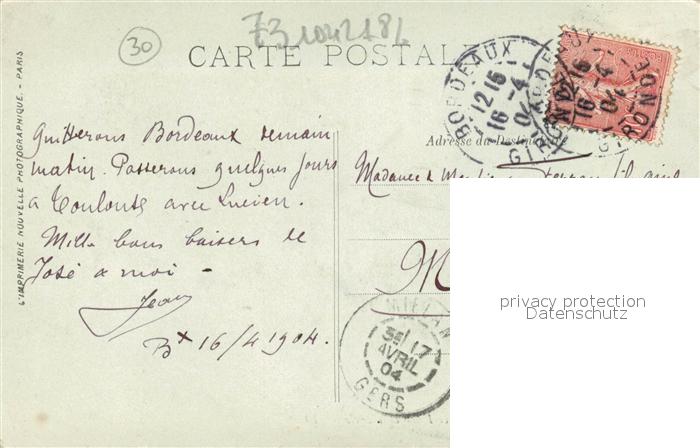 73104218L
30
CARTE POSTAL
BORDEAUX
12 15
16 -4
04
GIRONDE
BORDEAUX
12 15
16 -4
04
GIRONDE
Adresse du Destinataire
L'IMPRIMERIE NOUVELLE PHOTOGRAPHIQUE. - PARIS
Quitterons Bordeaux demain
matin. Passerons quelques jours
a Toulouse avec Lucien.
Mille bons baisers de
José a moi -
Jean
Bx 16/4 1904.
Madame &
M
17
AVRIL
04
GERS
privacy protection
Datenschutz